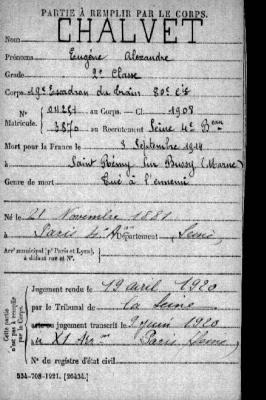 PARTIE À REMPLIR PAR LE CORPS.
Nom CHALVET
Prénoms Eugène Alexandre
Grade 2e Classe
Corps 19e Escadron du train 80e Cie
N° 24281 au Corps. — Cl. 1908
Matricule. 3870 au Recrutement Seine 4e Bau
Mort pour la France le 3 Septembre 1914
à Saint Rémy sur Bussy (Marne)
Genre de mort Tué à l'ennemi
Né le 21 Novembre 1881
à Paris 4e Arr Département Seine
Arrt municipal (pr Paris et Lyon),
à défaut rue et N°.
Cette partie n'est pas à remplir par le Corps.
Jugement rendu le 19 avril 1920
par le Tribunal de la Seine
acte ou jugement transcrit le 2 juin 1920
au XIe Arrt Paris (Seine)
N° du registre d'état civil
534-708-1921. [26434.]